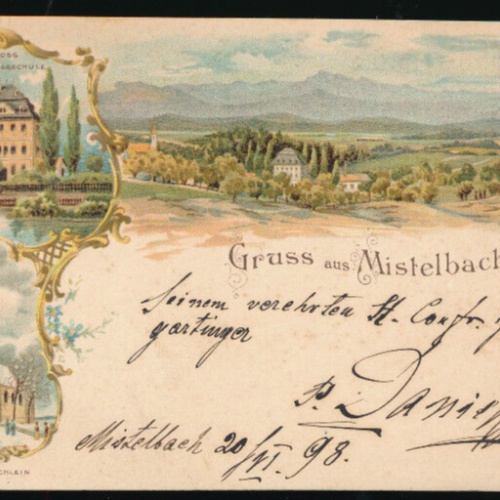 OSS
Gruss aus Mistelbach
Seinem verehrten St. Confr.
gartinger
P. Danis
Mistelbach 20/VI. 98.
HLEIN